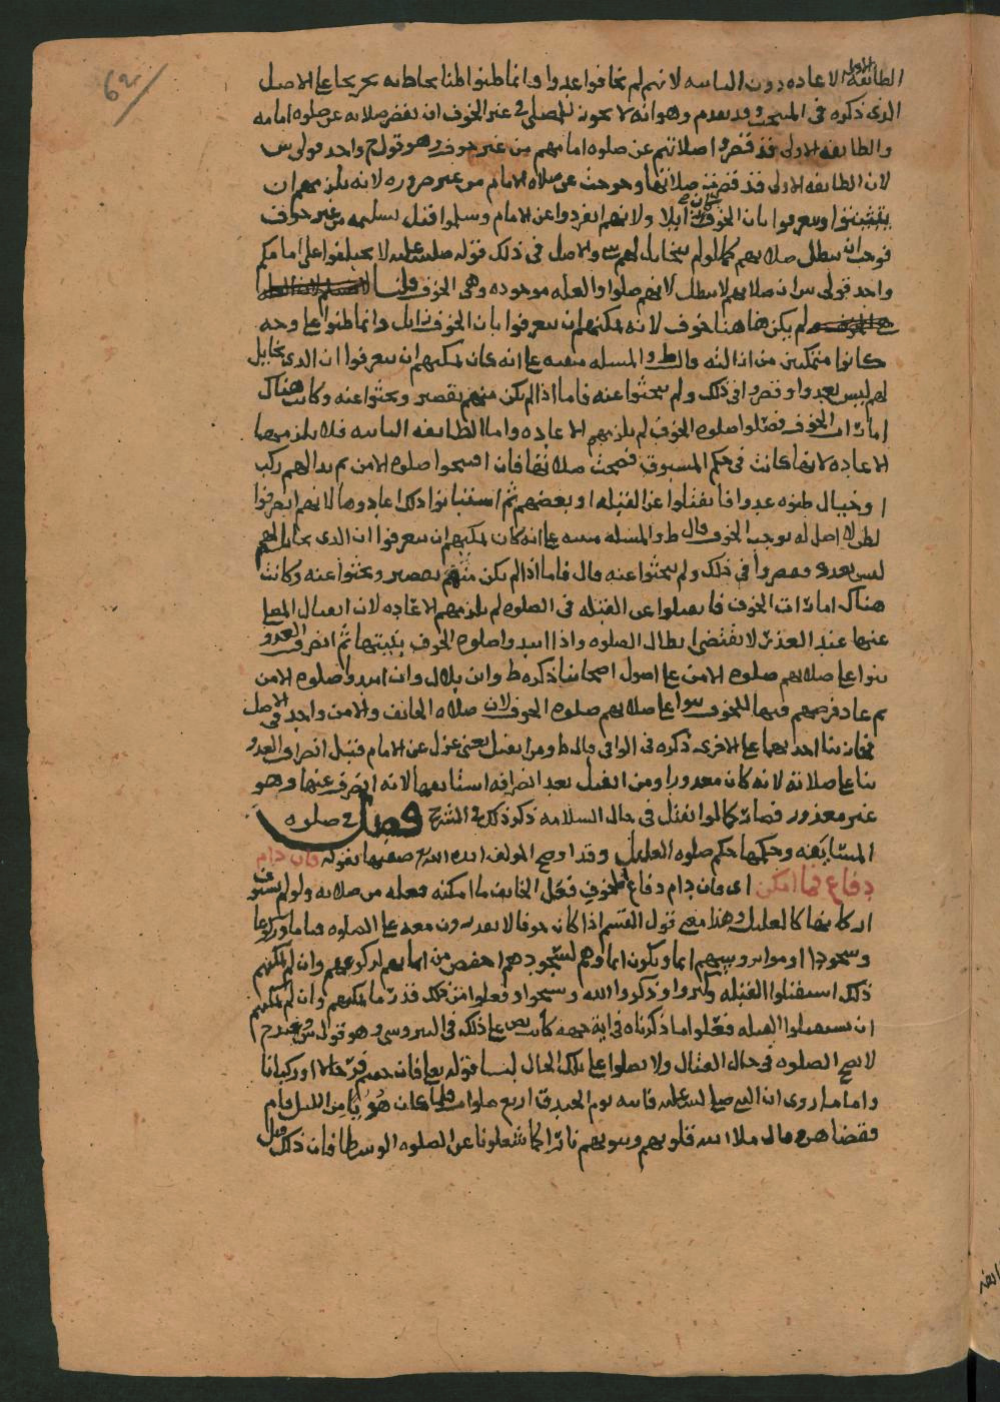 الطائفة الاولى الاعاده دون الثانيه لانهم لم يخافوا عدوا وانما ظنوا ظنا تخريجا على الاصل
الذي ذكره في المنتخب وقد تقدم وهو انه لا يجوز للمصلي في غير الخوف ان يقصر صلاته عن صلوه امامه
والطائفه الاولى قد قصروا صلاتهم عن صلوه امامهم من غير خوف وهو قول ح واحد قولي ش
لان الطائفه الاولى قد قصرت صلاتها وخرجت عن صلاه الامام من غير ضروره لانه يلزمهم ان
يتبينوا ويعرفوا بان الخوف زايلا ولانهم انفردوا عن الامام وسلموا قبل تسليمه من غير خوف
فوجب ان تبطل صلاتهم كما لو لم يتخايل لهم والاصل في ذلك قوله صلى الله عليه لا تختلفوا على امامكم
واحد قولي ش ان صلاتهم لا تبطل لانهم صلوا والعله موجوده وهي الخوف قلنا
لم يكن هاهنا خوف لانه يمكنهم ان يعرفوا بان الخوف زايل وانما ظنوا على وجه
كانوا متمكنين من ازالته قال ط والمسله مبنيه على انه كان يمكنهم ان يعرفوا ان الذي تخايل
لهم ليس بعدو او قصروا في ذلك ولم يبحثوا عنه فاما اذا لم يكن منهم تقصير وبحثوا عنه وكانت هناك
امارات الخوف فصلوا صلوه الخوف لم يلزمهم الاعاده واما الطائفه الثانيه فلا يلزمها
الاعاده لانها كانت في حكم المسبوق فصحت صلاتها فان افتتحوا صلوه الامن ثم بدا لهم ركب
او خيال ظنوه عدوا فانفتلوا عن القبله او بعضهم ثم استبانوا ذلك اعادوها لانهم انصرفوا
لظن لا اصل له يوجب الخوف قال ط والمسله مبنيه على انه كان يمكنهم ان يعرفوا ان الذي تخايل لهم
ليس بعدو وقصروا في ذلك ولم يبحثوا عنه قال فاما اذا لم يكن منهم تقصير وبحثوا عنه وكانت
هناك امارات الخوف فانفتلوا عن القبله في الصلوه لم يلزمهم الاعاده لان انفتال المصلي
عنها عند العذر لا يقتضي ابطال الصلوه واذا ابتدوا صلوه الخوف بنيتها ثم انصرف العدو
بنوا على صلاتهم صلوه الامن على اصول اصحابنا ذكره ط وابن بلال وان ابتدوا صلوه الامن
ثم عاد فرضهم فيها للخوف بنوا على صلاتهم صلوه الخوف لان صلاه الخائف والامن واحد في الاصل
فجاز بنا احدهما على الاخرى ذكره في الوافي قال ط ومن انفتل يعني عدل عن الامام قبل انصراف العدو
بنا على صلاته لانه كان معذورا ومن انفتل بعد انصرافه استانفها لانه انصرف عنها وهو
غير معذور فصار كما لو انفتل في حال السلامه ذكر ذلك في الشرح فصل في صلوه
المسايفه وحكمها حكم صلوه العليل وقد اوضح المولف ايده الله صفتها بقوله فان دام
دفاع فما امكن اي فان دام دفاع لخوف فعل الخائف ما امكنه فعله من صلاته ولو لم يستوف
اركانها كالعليل وهذا معنى قول القسم اذا كان خوفا لا يقدرون معه على الصلوه قياما وركوعا
وسجودا اوموا برووسهم ايما ويكون ايماؤهم لسجودهم اخفض من ايمائهم لركوعهم وان لم يمكنهم
ذلك استقبلوا القبله وكبروا وذكروا الله وسبحوا وفعلوا من ذلك قدر ما يمكنهم وان لم يمكنهم
ان يستقبلوا القبله فعلوا ما ذكرناه في اية جهه كانت نص على ذلك في النيروسي وهو قول ش وعند ح
لا يصح الصلوه في حال القتال ولا يصلوا على تلك الحال لنا قوله تعالى فان خفتم فرجالا او ركبانا
واما ما روي ان النبي صلى الله عليه فاته يوم الخندق اربع صلوات فلما كان هويا من الليل قام
فقضاهن وقال ملا الله قلوبهم وبيوتهم نارا كما شغلونا عن الصلوه الوسطا فان ذلك قبل